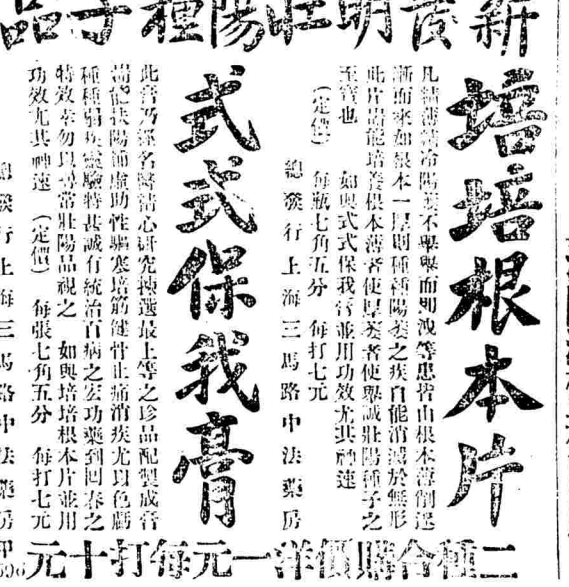 新發明壯陽種子品
培培根本片
凡精薄精冷陽萎不舉舉而即洩等患皆由根本薄削逐
漸而來如根本一厚則種種陽萎之疾自能消滅於無形
此片最能培養根本薄者使厚萎者使舉誠壯陽種子之
至寶也 如與式式保我膏並用功效尤其神速
(定價) 每瓶七角五分 每打七元
總發行上海三馬路中法藥房
式式保我膏
此膏乃經名醫精心研究揀選最上等之珍品配製成膏
最能扶陽補虛助性驅寒培筋健骨止痛消疾尤以色虧
種種弱疾靈驗特甚誠有統治百病之宏功藥到回春之
特效幸勿以尋常壯陽品視之 如與培培根本片並用
功效尤其神速 (定價) 每張七角五分 每打七元
總發行上海三馬路中法藥房
二種合購價洋一元每打十元